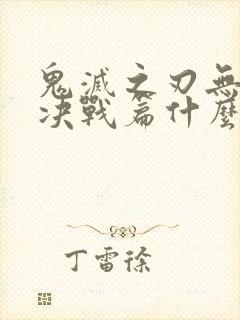 鬼滅之刃無
决戰篇什麼
丁雷徐